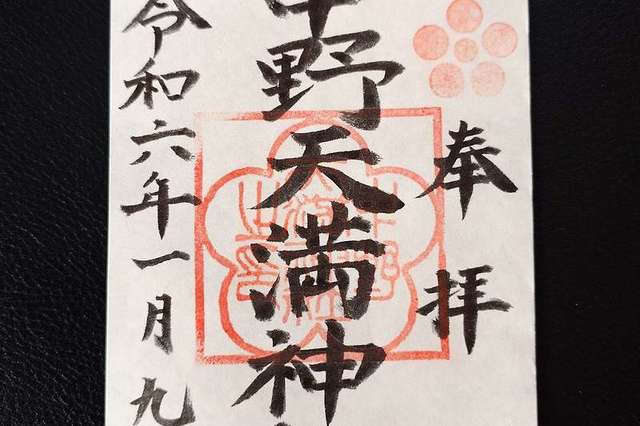 奉拝
野天満神
令和六年一月九